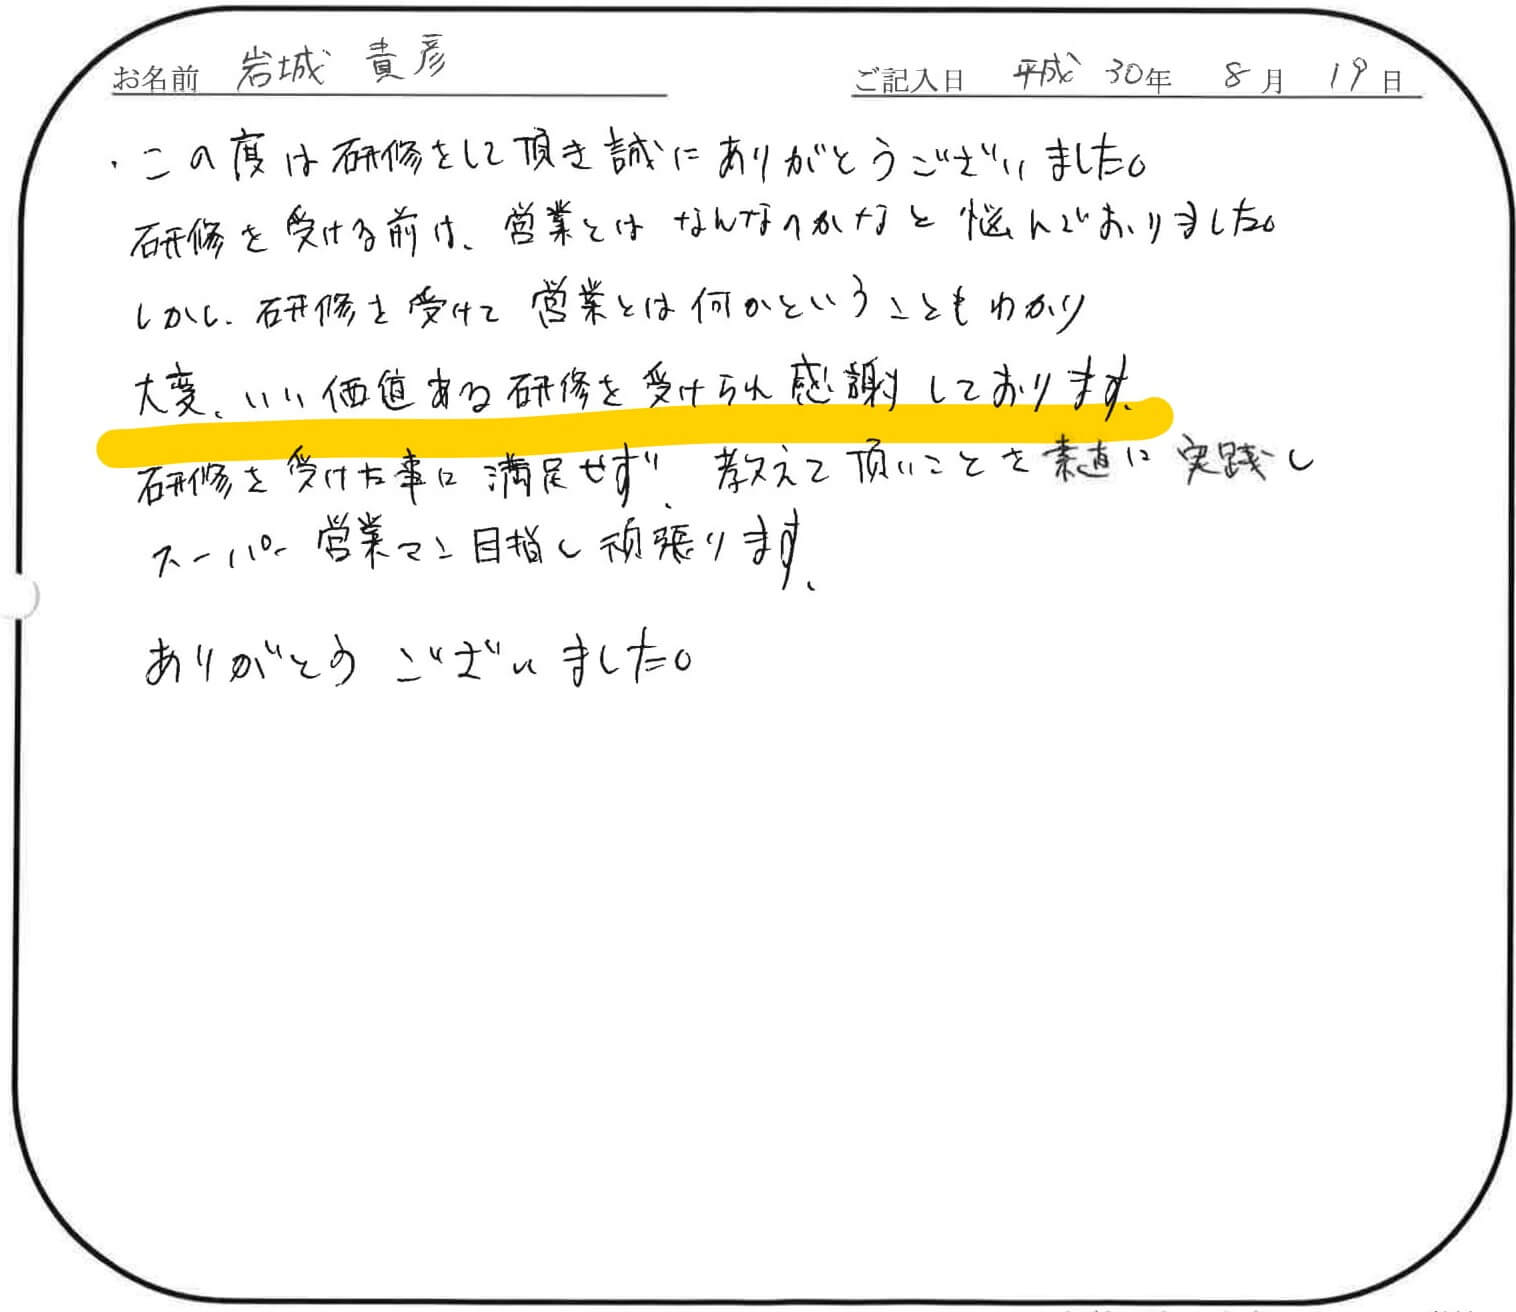 お名前 岩城 貴彦 ご記入日 平成 30年 8月 19日
・この度は研修をして頂き誠にありがとうございました。
研修を受ける前は、営業とはなんなのかなと悩んでおりました。
しかし、研修を受けて営業とは何かということもわかり
大変、いい価値ある研修を受けられ感謝しております。
研修を受けた事に満足せず、教えて頂いことを素直に実践し
スーパー営業マン目指し頑張ります、
ありがとうございました。